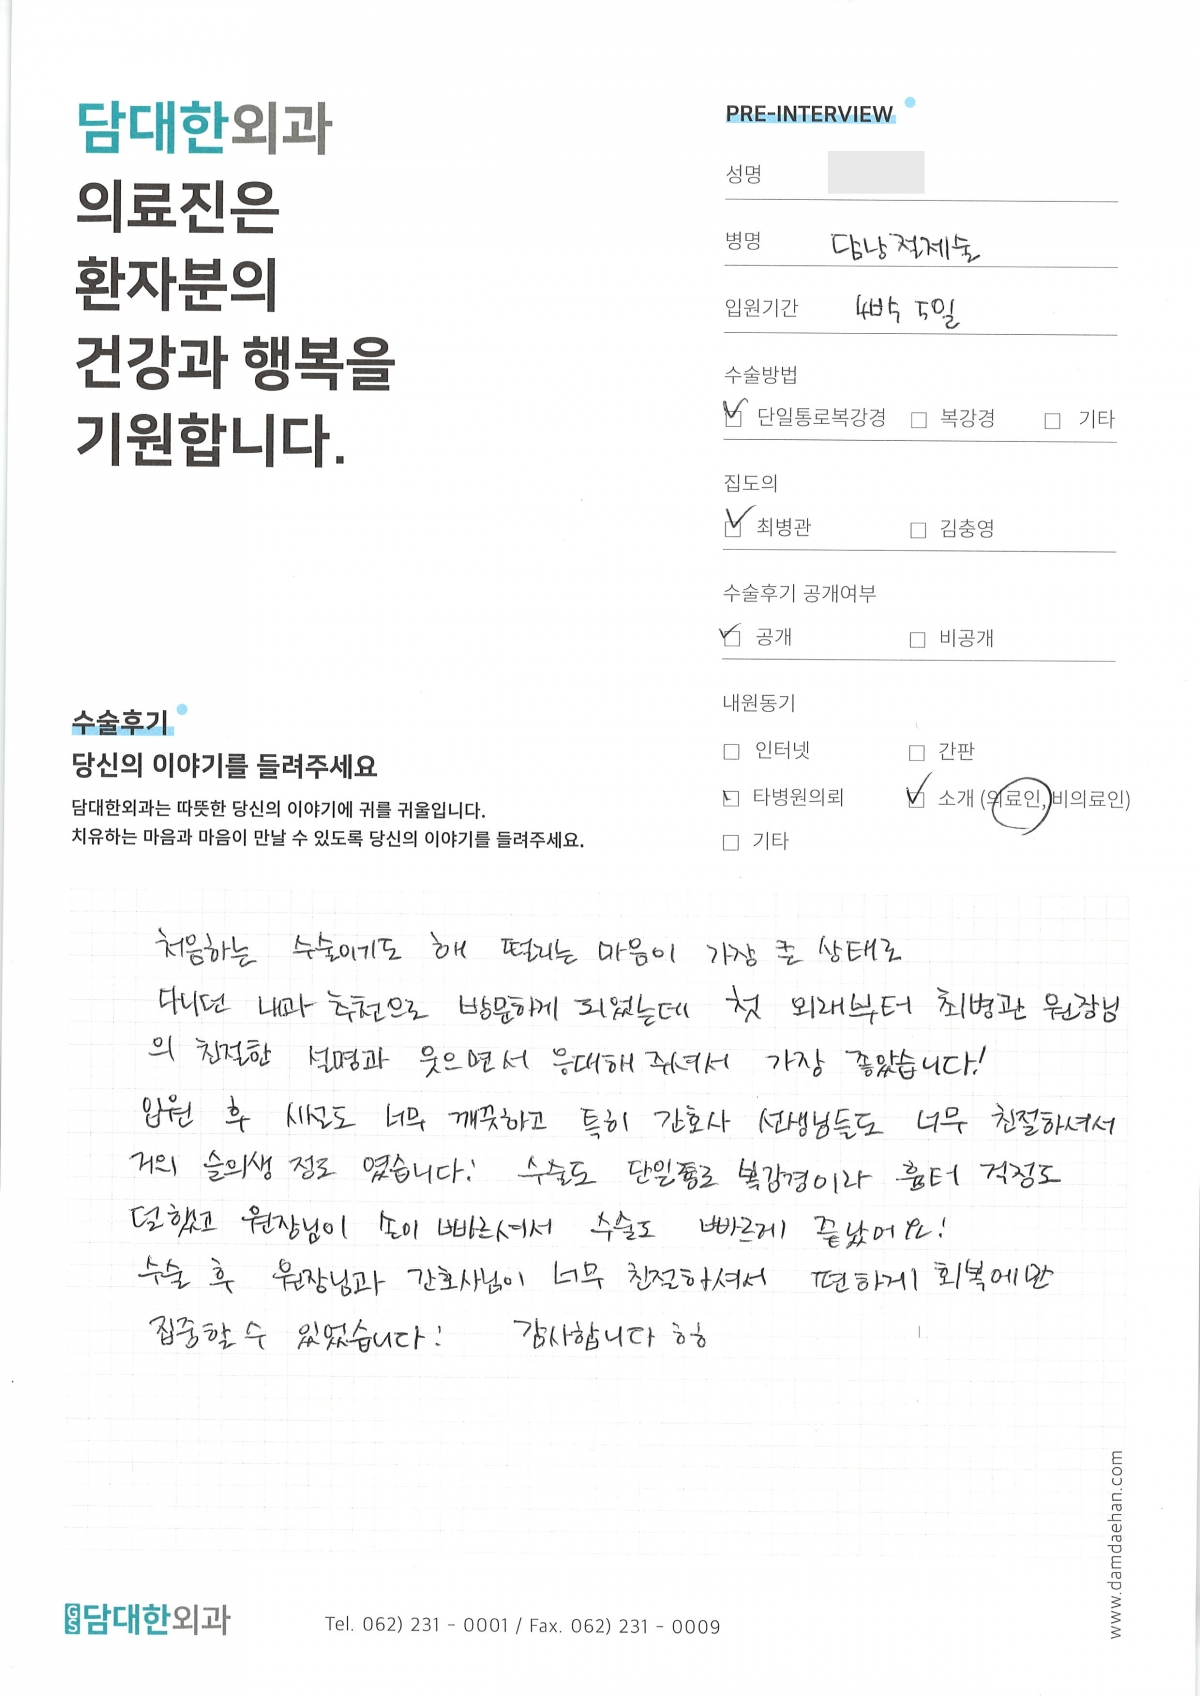 담대한외과
의료진은
환자분의
건강과 행복을
기원합니다.
PRE-INTERVIEW
성명
병명 담낭절제술
입원기간 5일
수술방법
☑ 단일통로복강경 □ 복강경 □ 기타
집도의
☑ 최병관 □ 김충영
수술후기 공개여부
☑ 공개 □ 비공개
내원동기
□ 인터넷 □ 간판
□ 타병원의뢰 ☑ 소개 (의료인, 비의료인)
□ 기타
수술후기
당신의 이야기를 들려주세요
담대한외과는 따뜻한 당신의 이야기에 귀를 귀울입니다.
치유하는 마음과 마음이 만날 수 있도록 당신의 이야기를 들려주세요.
처음하는 수술이기도 해 떨리는 마음이 가장 큰 상태로
다니던 내과 추천으로 방문하게 되었는데 첫 외래부터 최병관 원장님
의 친절한 설명과 웃으면서 응대해 주셔서 가장 좋았습니다!
입원 후 시설도 너무 깨끗하고 특히 간호사 선생님들도 너무 친절하셔서
거의 술의생 정도 였습니다! 수술도 단일통로 복강경이라 흉터 걱정도
덜했고 원장님이 손이 빠르셔서 수술도 빠르게 끝났어요!
수술 후 원장님과 간호사님이 너무 친절하셔서 편하게 회복에만
집중할 수 있었습니다! 감사합니다 ㅎㅎ
www.damdaehan.com
GS 담대한외과
Tel. 062) 231 - 0001 / Fax. 062) 231 - 0009